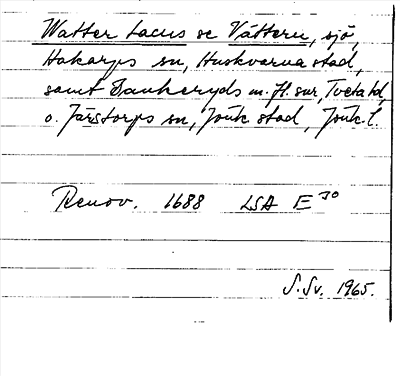 Watter Lacus se Vättern, sjö,
Hakarps sn, Huskvarna stad,
samt Bankeryds m.fl. snr, Tveta hd,
o. Järstorps sn, Jönk. stad, Jönk. l.
Renov. 1688 LSA E 30
S. Sv. 1965.